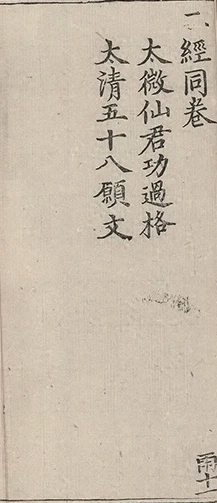 二經同卷
太微仙君功過格
太清五十八願文
雨十